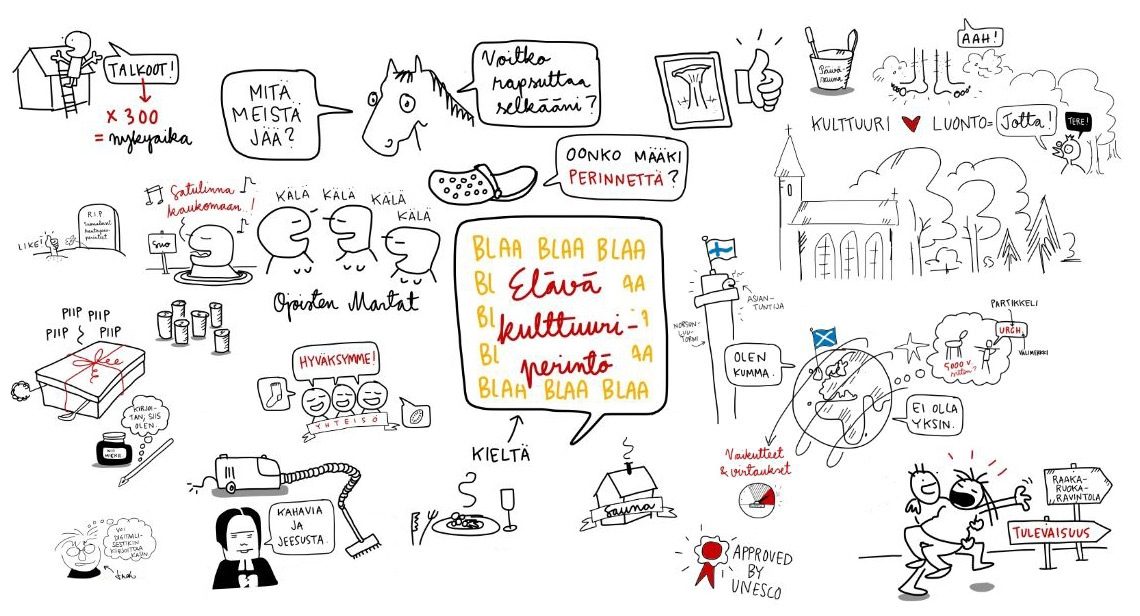 TALKOOT!
x 300
= nykyaika
MITÄ
MEISTÄ
JÄÄ?
Voitko
rapsuttaa
selkääni?
Päivä
AAH!
KULTTUURI ♥ LUONTO =
Jotta!
TERE!
OONKO MÄÄKI
PERINNETTÄ?
LIKE!
R.I.P.
SUO
Satulinna
kaukomaan..!
KÄLÄ
KÄLÄ
KÄLÄ
KÄLÄ
Ojoisten Martat
BLAA BLAA BLAA
BL Elävä AA
BL kulttuuri-
BL perintö AA
BLAH BLAA BLAA
KIELTÄ
ASIAN-
TUNTIJA
NORSUN-
LUU-
TORNI
OLEN
KUMMA.
EI OLLA
YKSIN.
PARTIKKELI
URGH,
VÄLIMERKKI
5000 v.
sitten?
PIIP
PIIP
PIIP
PIIP
HYVÄKSYMME!
YHTEISÖ
KIRJOI-
TAN, SIIS
OLEN.
KAHAVIA
JA
JEESUSTA.
Sauna
Vaikutteet
& virtaukset
APPROVED
BY
UNESCO
RAAKA-
RUOKA-
RAVINTOLA
TULEVAISUUS
VOI
DIGITAALI-
SESTIKIN
KIRJOITTAA
KÄSIN.